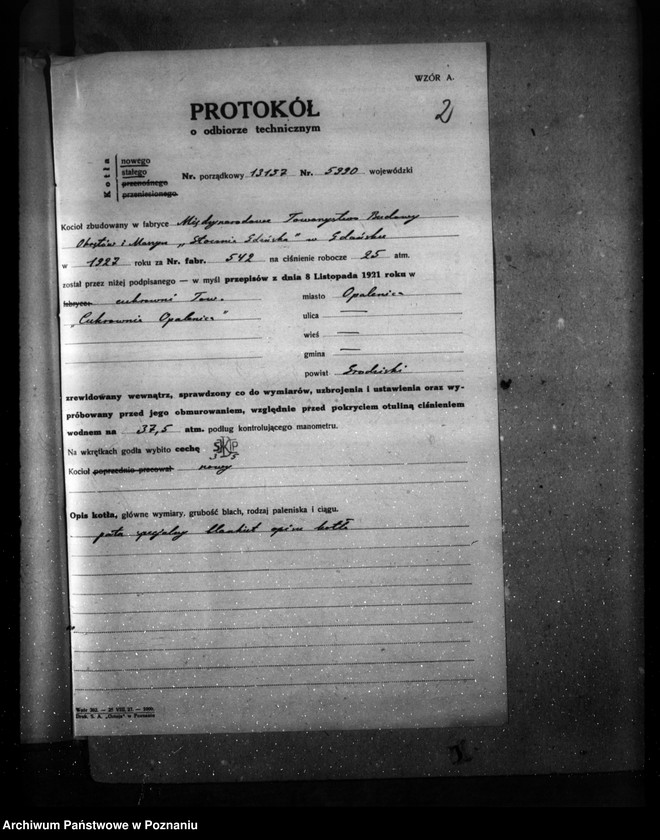 WZÓR A.
2
PROTOKÓŁ
o odbiorze technicznym
Kotła
nowego
stałego
przenośnego
przeniesionego
Nr. porządkowy 13137 Nr. 5990 wojewódzki
Kocioł zbudowany w fabryce Międzynarodowe Towarzystwo Budowy
Okrętów i Maszyn „Stocznia Gdańska" w Gdańsku
w 1927 roku za Nr. fabr. 542 na ciśnienie robocze 25 atm.
został przez niżej podpisanego — w myśl przepisów z dnia 8 Listopada 1921 roku w
fabryce cukrowni Tow. miasto Opalenica
„Cukrownia Opalenica" ulica —
wieś —
gmina —
powiat Grodziski
zrewidowany wewnątrz, sprawdzony co do wymiarów, uzbrojenia i ustawienia oraz wy-
próbowany przed jego obmurowaniem, względnie przed pokryciem otuliną ciśnieniem
wodnem na 37,5 atm. podług kontrolującego manometru.
Na wkrętkach godła wybito cechę
Kocioł poprzednio pracował nowy
Opis kotła, główne wymiary, grubość blach, rodzaj paleniska i ciągu.
specjalny blankiet opisu kotła
Wzór 302. — 27 VIII. 27. — 1000.
Druk. S. A. „Ostoja" w Poznaniu
Archiwum Państwowe w Poznaniu